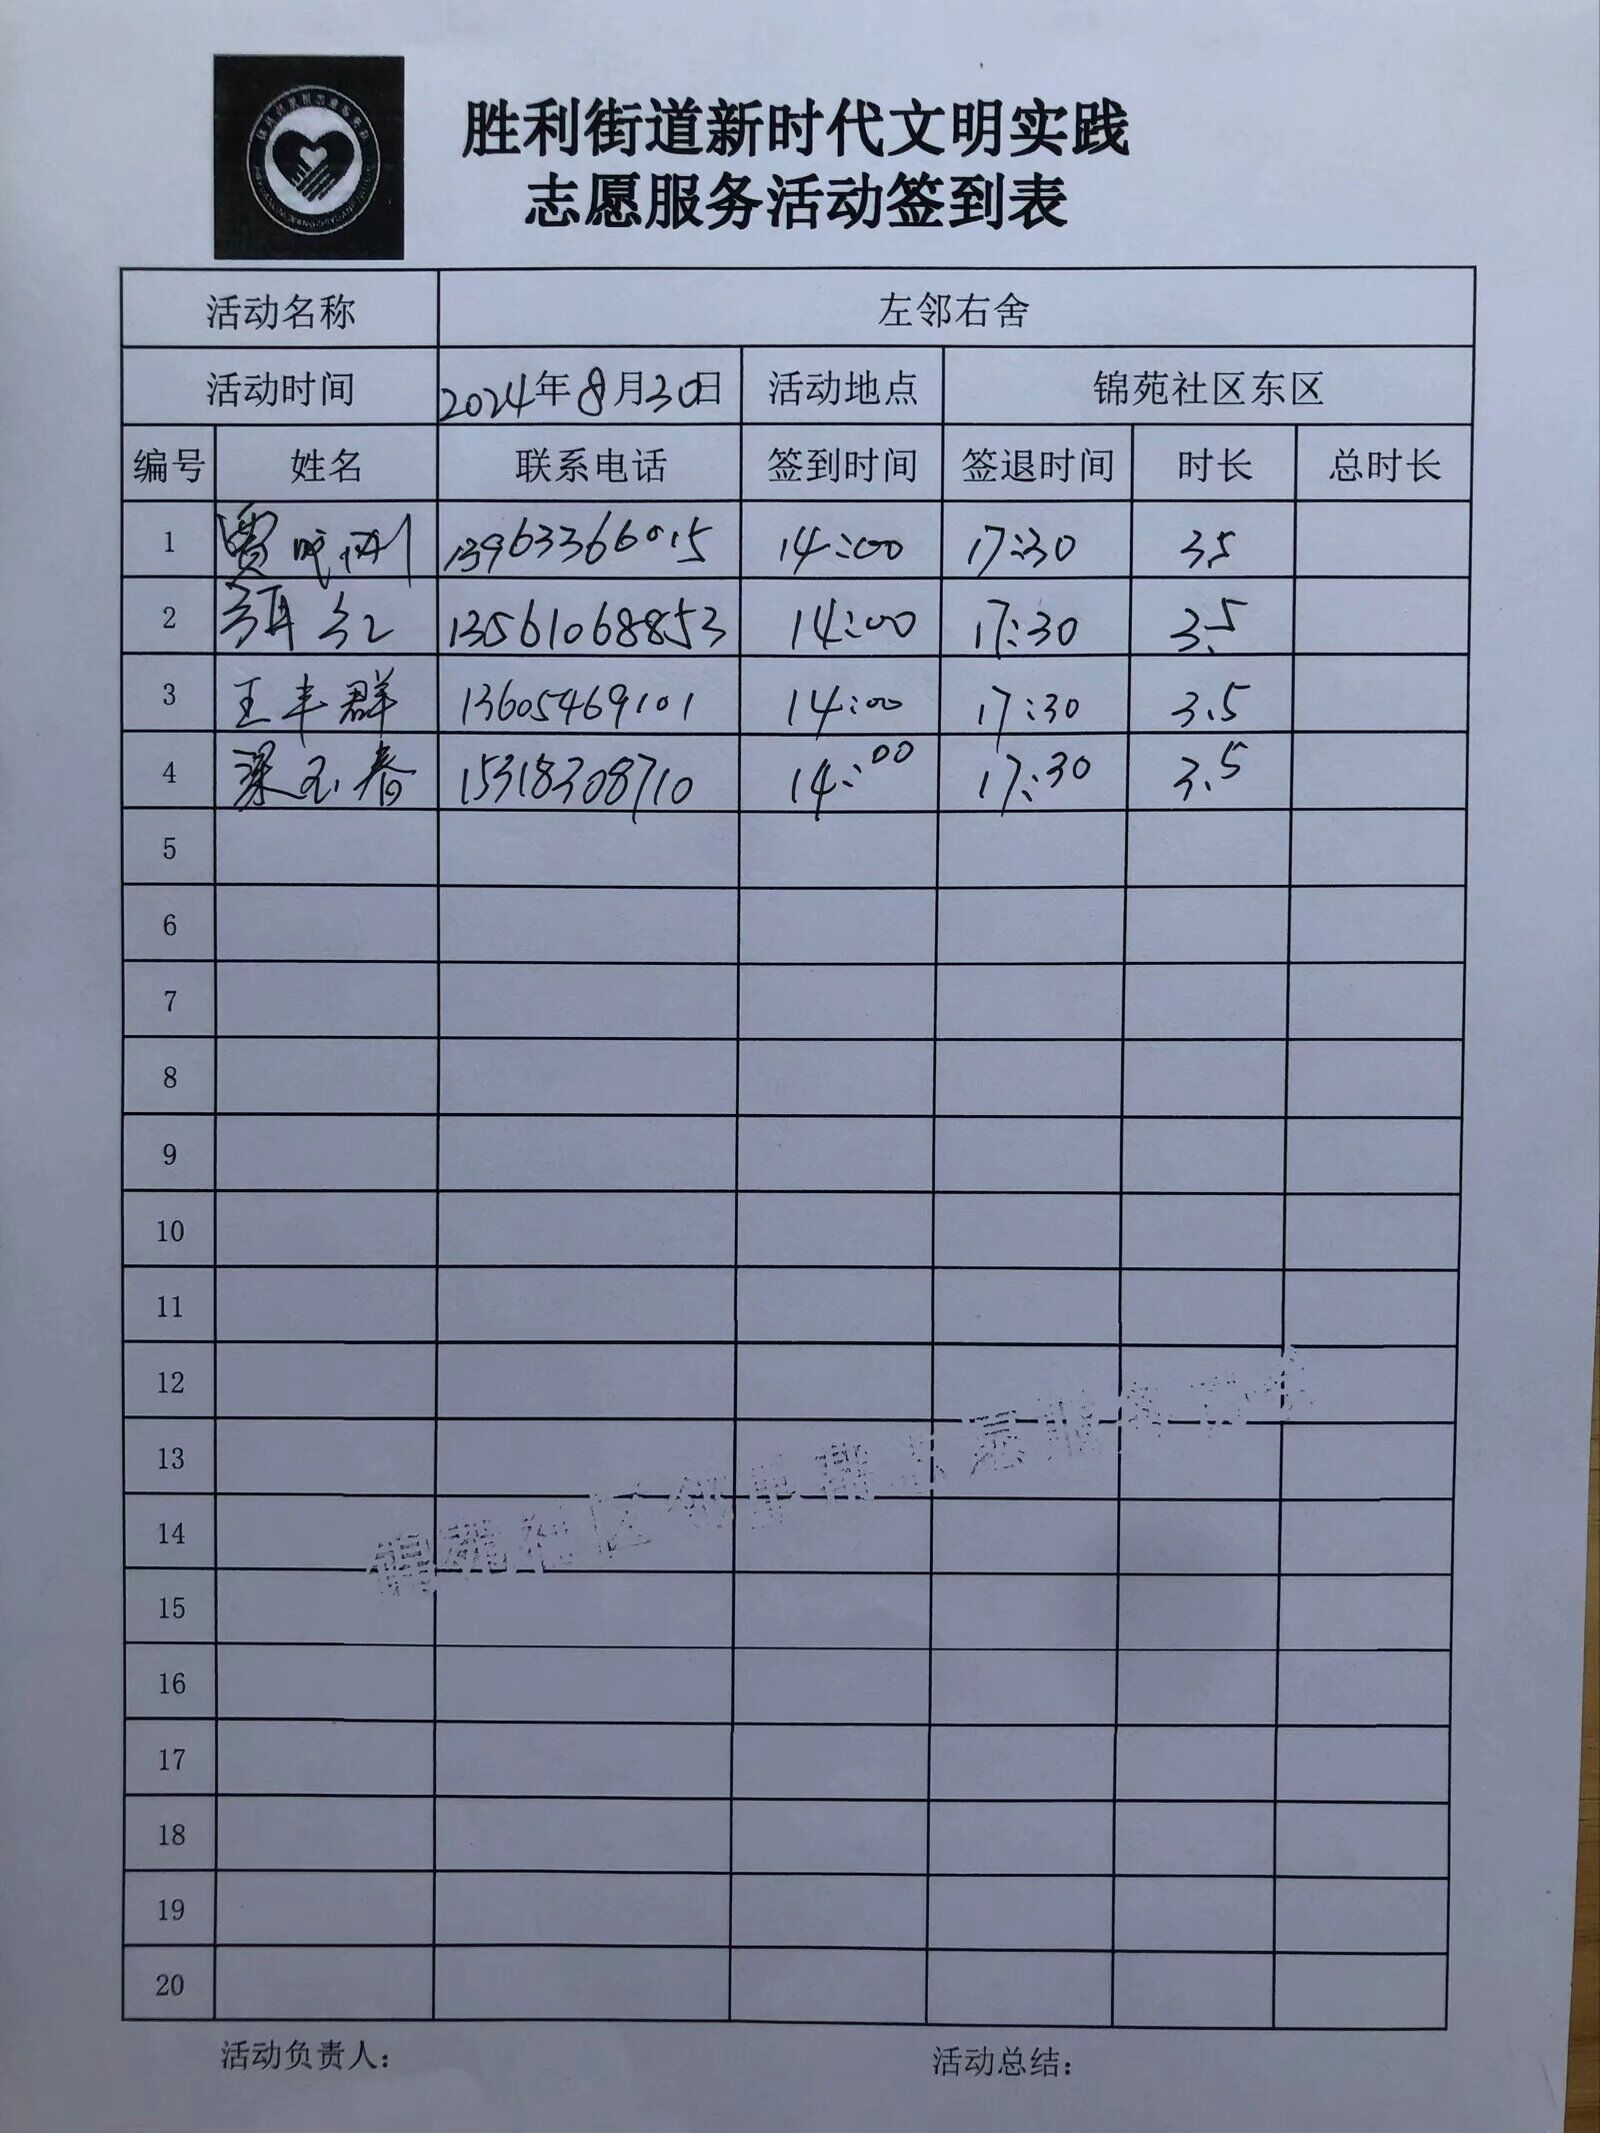 胜利街道新时代文明实践
志愿服务活动签到表
活动名称 左邻右舍
活动时间 2024年8月30日 活动地点 锦苑社区东区
编号 姓名 联系电话 签到时间 签退时间 时长 总时长
1 贾 13963366015 14:00 17:30 3.5
2 13561068853 14:00 17:30 3.5
3 王丰群 13605469101 14:00 17:30 3.5
4 梁玉春 15318308710 14:00 17:30 3.5
5
6
7
8
9
10
11
12
13
14
15
16
17
18
19
20
锦苑社区 志愿服务
活动负责人: 活动总结: